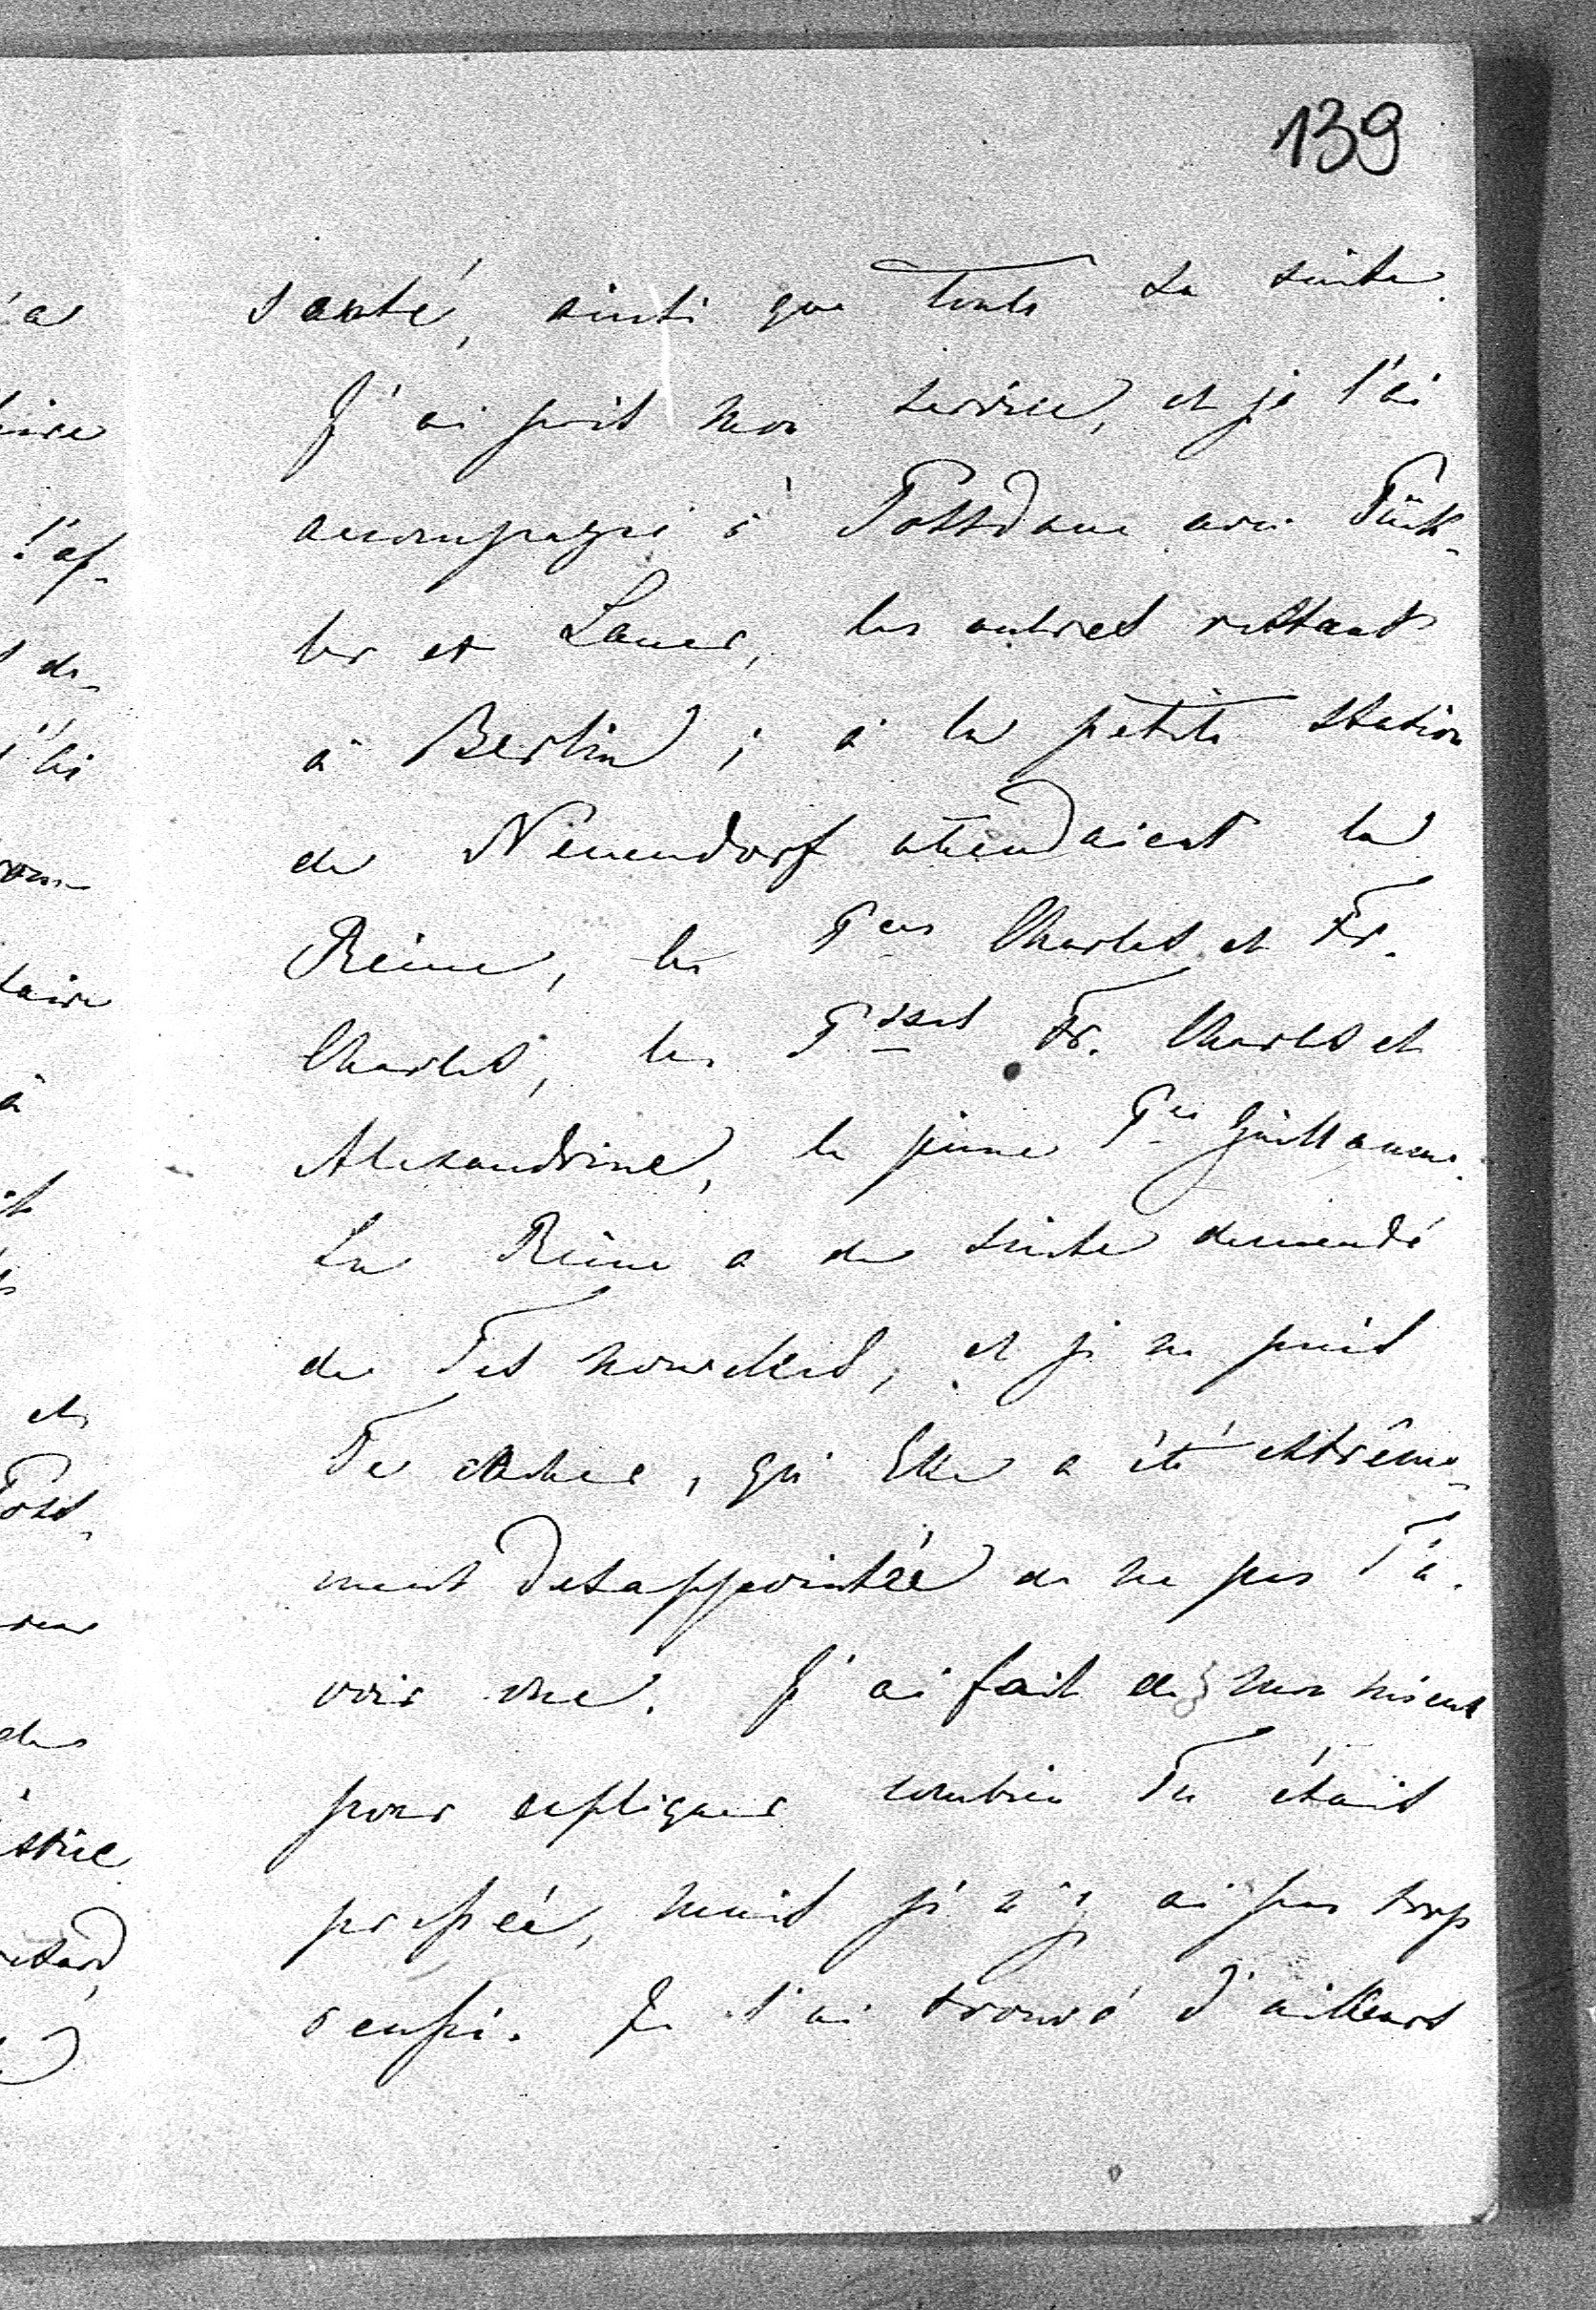 139
santé, ainsi que toute sa suite.
J'ai pris mon service, et je l'ai
accompagné à Potsdame avec Pück-
ler et Lauer, les autres restant
à Berlin ; à la petite station
de Neuendorf attendaient la
Reine, les Pces Charles et Fr.
Charles, les Psses Fr. Charles et
Alexandrine, le jeune Pce Guillaume.
La Reine a de suite demandé
de Tes nouvelles, et je ne puis
Te cacher, qu'Elle a été extrême-
ment desappointée de ne pas T'a-
voir vue. J'ai fait de mon mieux
pour expliquer combien Tu étais
pressée, mais je n'y ai pas trop
reussi. Je l'ai trouvé d'ailleurs